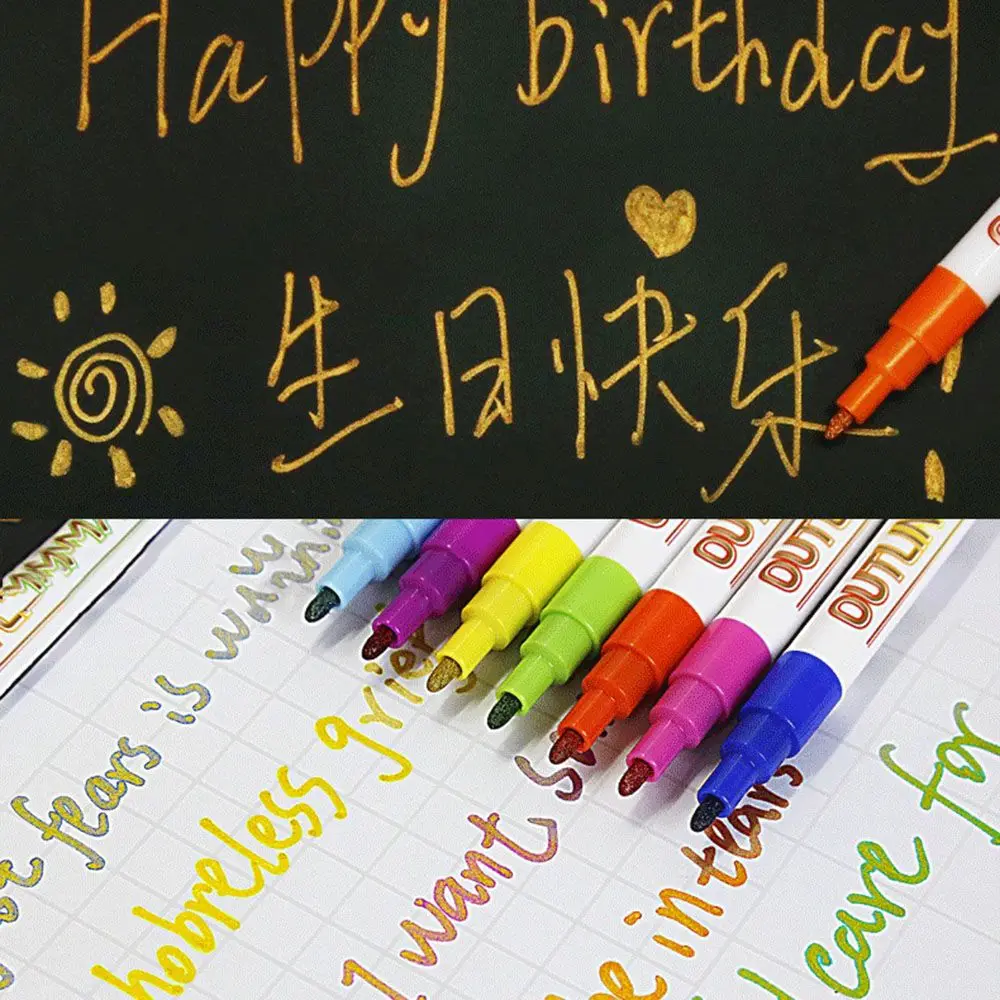 Happy birthday
生日快乐
OUTLIN
OUTLI
OUT
fears is
hobreless grie
I want
in tears
care for